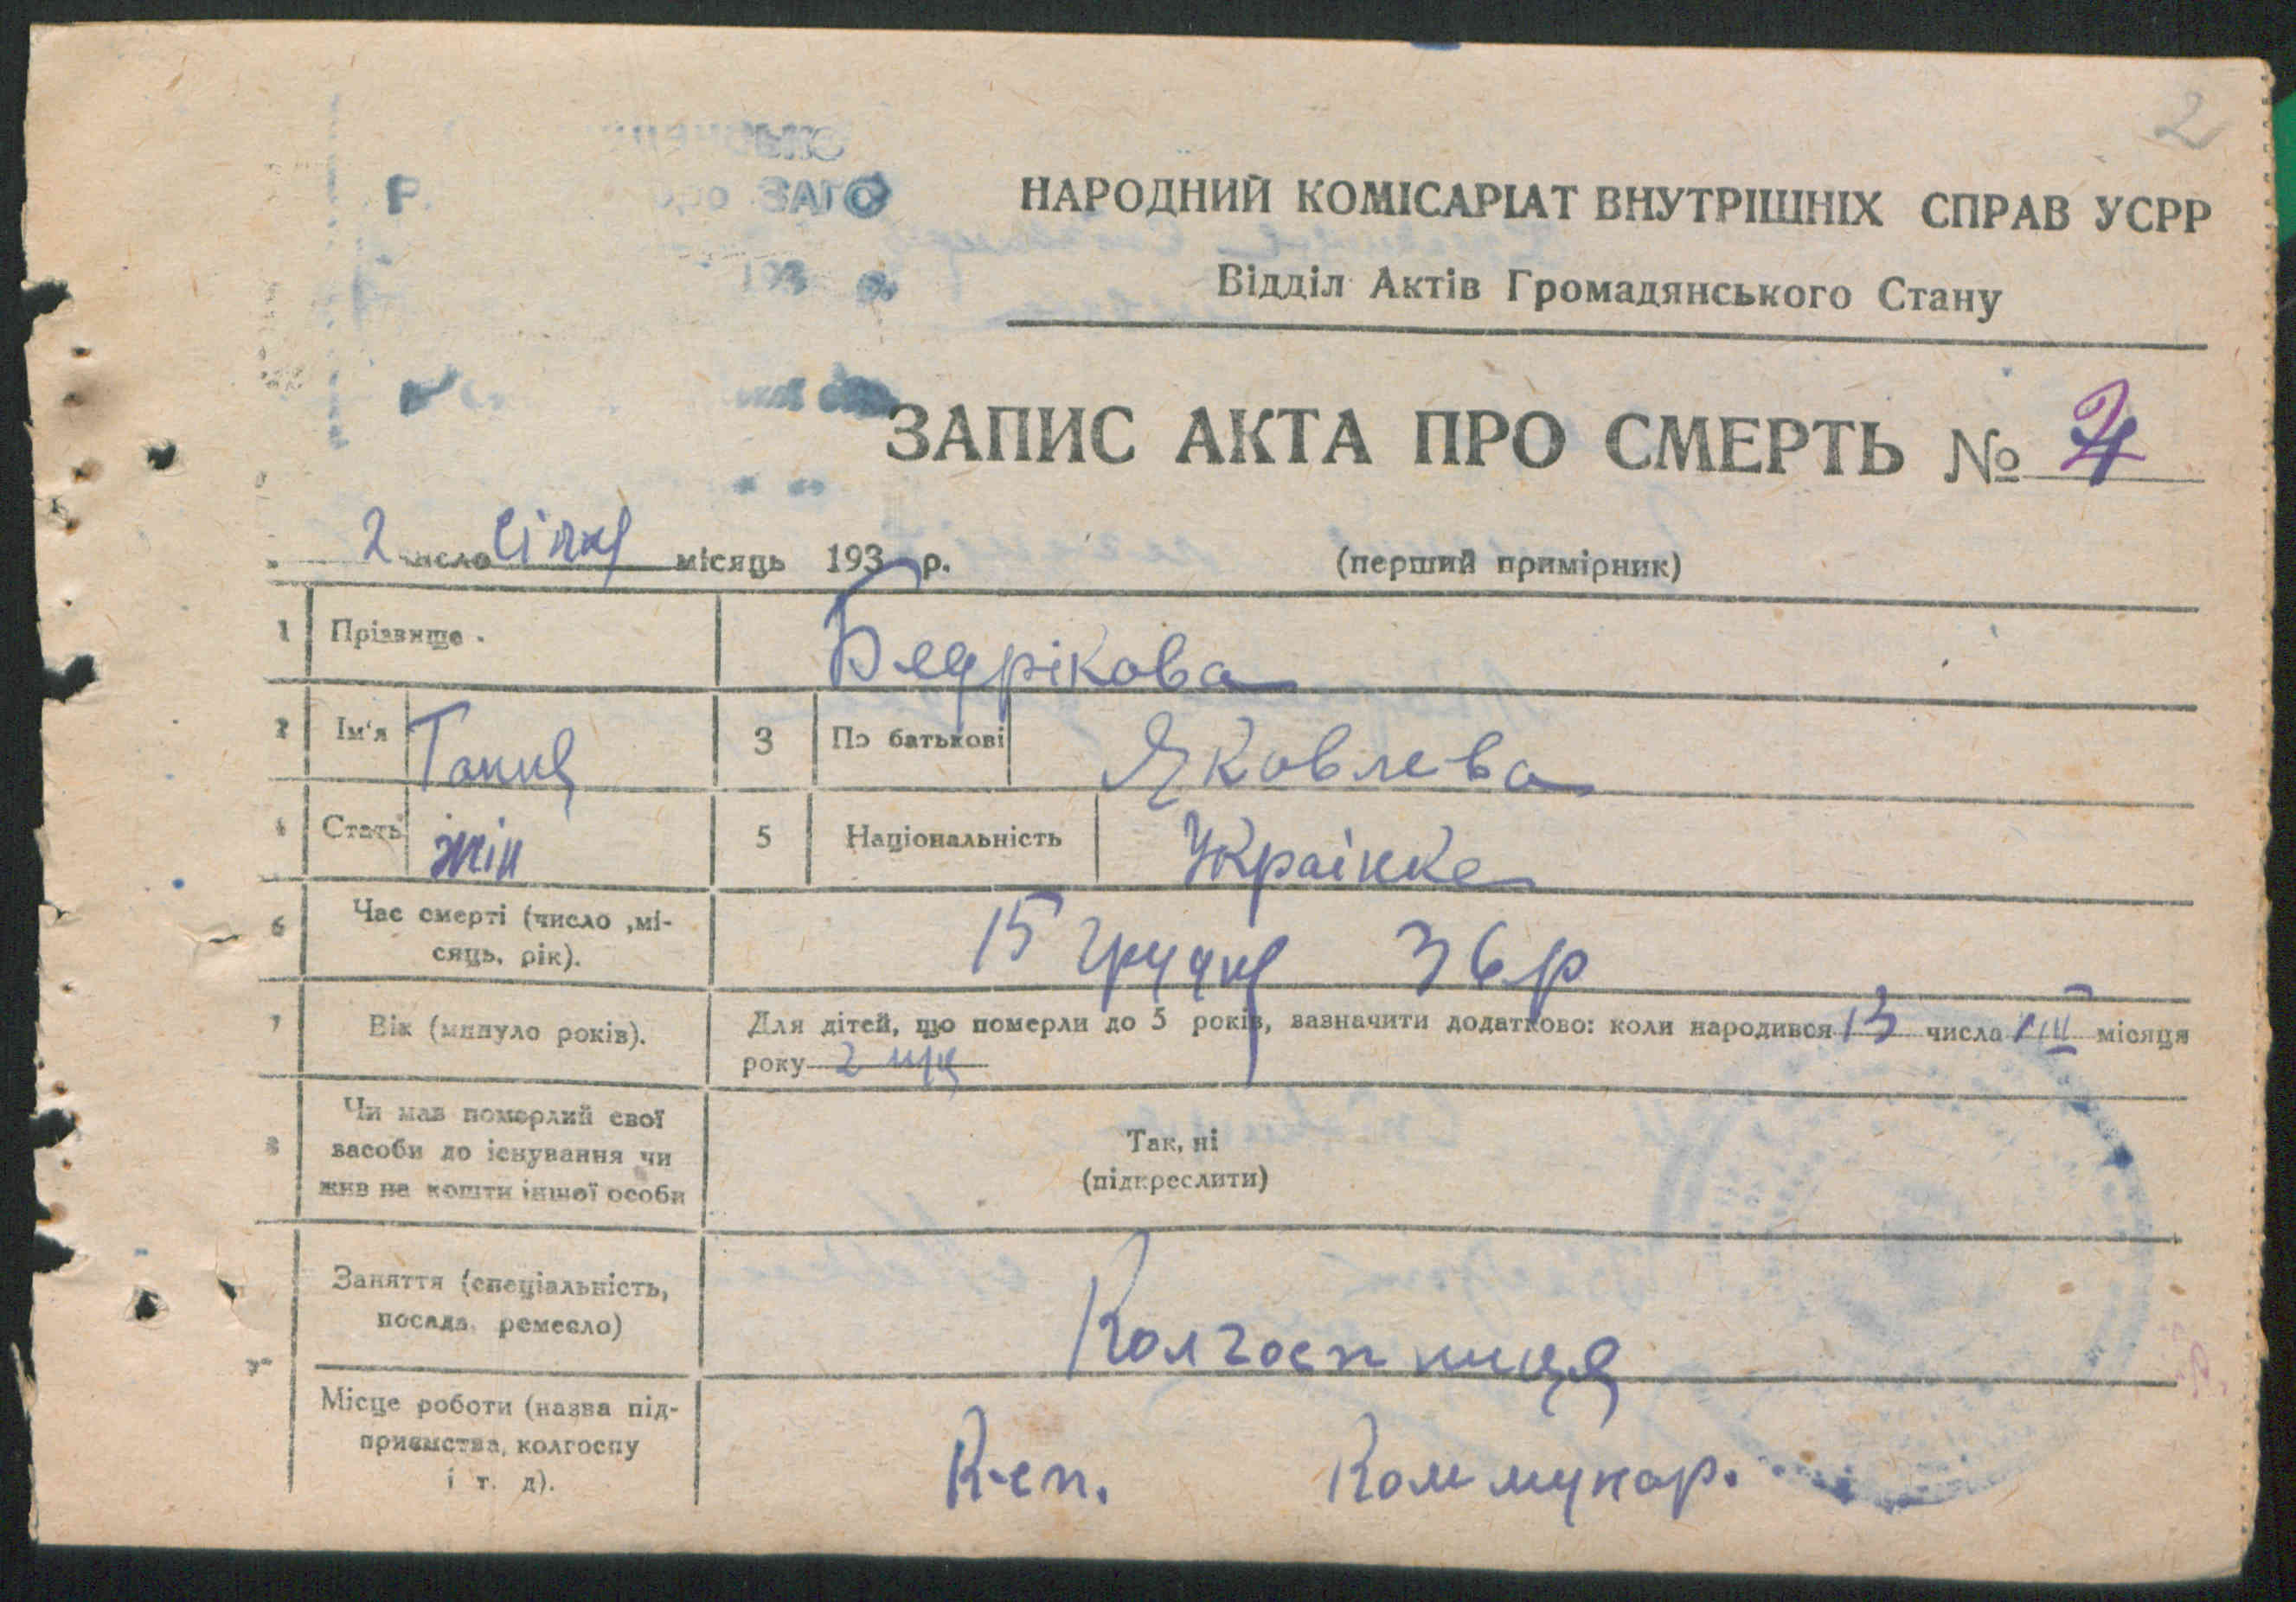 2
НАРОДНИЙ КОМІСАРІАТ ВНУТРІШНІХ СПРАВ УСРР
Р. ЗАГС
Відділ Актів Громадянського Стану
193
ЗАПИС АКТА ПРО СМЕРТЬ №
2 число Січня місяць 193 р. (перший примірник)
1 Прізвище . Бедрікова
2 Ім'я Танця 3 По батькові Яковлева
4 Стать жін 5 Національність Українке
6 Час смерті (число ,мі-
сяць, рік). 15 Грудня 36 р
7 Вік (минуло років). Для дітей, що померли до 5 років, зазначити додатково: коли народився 13 числа місяця
року 2 міс
8 Чи мав померлий свої
засоби до існування чи
жив на кошти іншої особи
Так, ні
(підкреслити)
Заняття (спеціальність,
посада, ремесло)
Колгоспниця
Місце роботи (назва під-
приємства, колгоспу
і т. д).
К-сп. Коммунар.